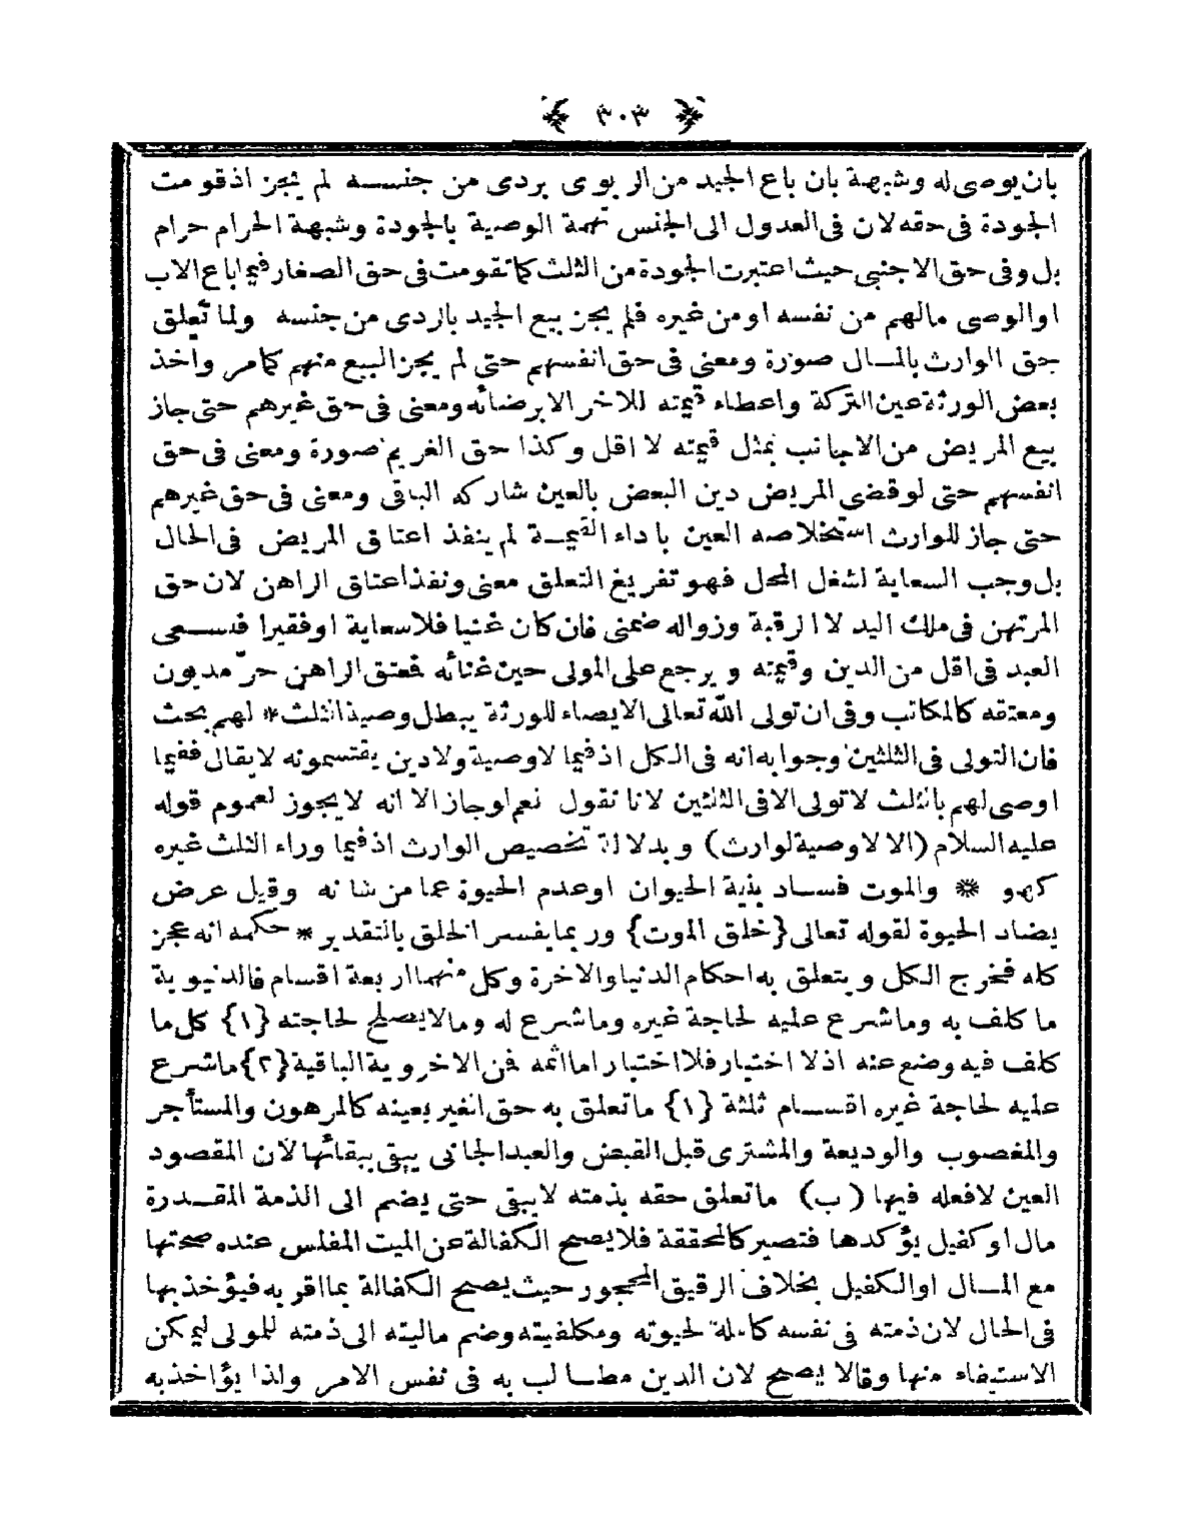 ﴿ ٣٠٣ ﴾
بان يوصى له وشبهة بان باع الجيد من الربوى بردى من جنسه لم يجز اذ قومت
الجودة فى حقه لان فى العدول الى الجنس تهمة الوصية بالجودة وشبهة الحرام حرام
بل وفى حق الاجنبى حيث اعتبرت الجودة من الثلث كما تقومت فى حق الصغار فيما باع الاب
او الوصى مالهم من نفسه او من غيره فلم يجز بيع الجيد باردى من جنسه ولما تعلق
حق الوارث بالمال صورة ومعنى فى حق انفسهم حتى لم يجز البيع منهم كما مر واخذ
بعض الورثة عين التركة واعطاء قيمته للاخر الا برضائه ومعنى فى حق غيرهم حتى جاز
بيع المريض من الاجانب بمثل قيمته لا اقل وكذا حق الغريم صورة ومعنى فى حق
انفسهم حتى لو قضى المريض دين البعض بالعين شاركه الباقى ومعنى فى حق غيرهم
حتى جاز للوارث استخلاصه العين باداء القيمة لم ينفذ اعتاق المريض فى الحال
بل وجب السعاية لشغل المحل فهو تفريغ التعلق معنى ونفذ اعتاق الراهن لان حق
المرتهن فى ملك اليد لا الرقبة وزواله ضمنى فان كان غنيا فلا سعاية او فقيرا فسعى
العبد فى اقل من الدين وقيمته ويرجع على المولى حين غنائه فعتق الراهن حرّ مديون
ومعتقه كالمكاتب وفى ان تولى الله تعالى الايصاء للورثة يبطل وصية الثلث * لهم بحث
فان التولى فى الثلثين وجوابه انه فى الكل اذ فيما لا وصية ولا دين يقتسمونه لا يقال ففيما
اوصى لهم بالثلث لا تولى الا فى الثلثين لانا نقول نعم لو جاز الا انه لا يجوز لعموم قوله
عليه السلام (الا لا وصية لوارث) وبدلالة تخصيص الوارث اذ فيما وراء الثلث غيره
كهو * والموت فساد بنية الحيوان او عدم الحيوة عما من شانه وقيل عرض
يضاد الحيوة لقوله تعالى {خلق الموت} وربما يفسر الخلق بالتقدير * حكمه انه عجز
كله فخرج الكل ويتعلق به احكام الدنيا والاخرة وكل منهما اربعة اقسام فالدنيوية
ما كلف به وما شرع عليه لحاجة غيره وما شرع له وما لا يصلح لحاجته {١} كل ما
كلف فيه وضع عنه اذ لا اختيار فلا اختبار اما اثمه فمن الاخروية الباقية {٢} ما شرع
عليه لحاجة غيره اقسام ثلثة {١} ما تعلق به حق الغير بعينه كالمرهون والمستأجر
والمغصوب والوديعة والمشترى قبل القبض والعبد الجانى يبقى ببقائها لان المقصود
العين لا فعله فيها (ب) ما تعلق حقه بذمته لا يبقى حتى يضم الى الذمة المقدرة
مال او كفيل يؤكدها فتصير كالمحققة فلا يصح الكفالة عن الميت المفلس عنده صحتها
مع المال او الكفيل بخلاف الرقيق المحجور حيث يصح الكفالة بما اقر به فيؤخذ بها
فى الحال لان ذمته فى نفسه كاملة لحيوته ومكلفيته وضم ماليته الى ذمته للمولى ليمكن
الاستيفاء منها وقالا يصح لان الدين مطالب به فى نفس الامر ولذا يؤاخذ به